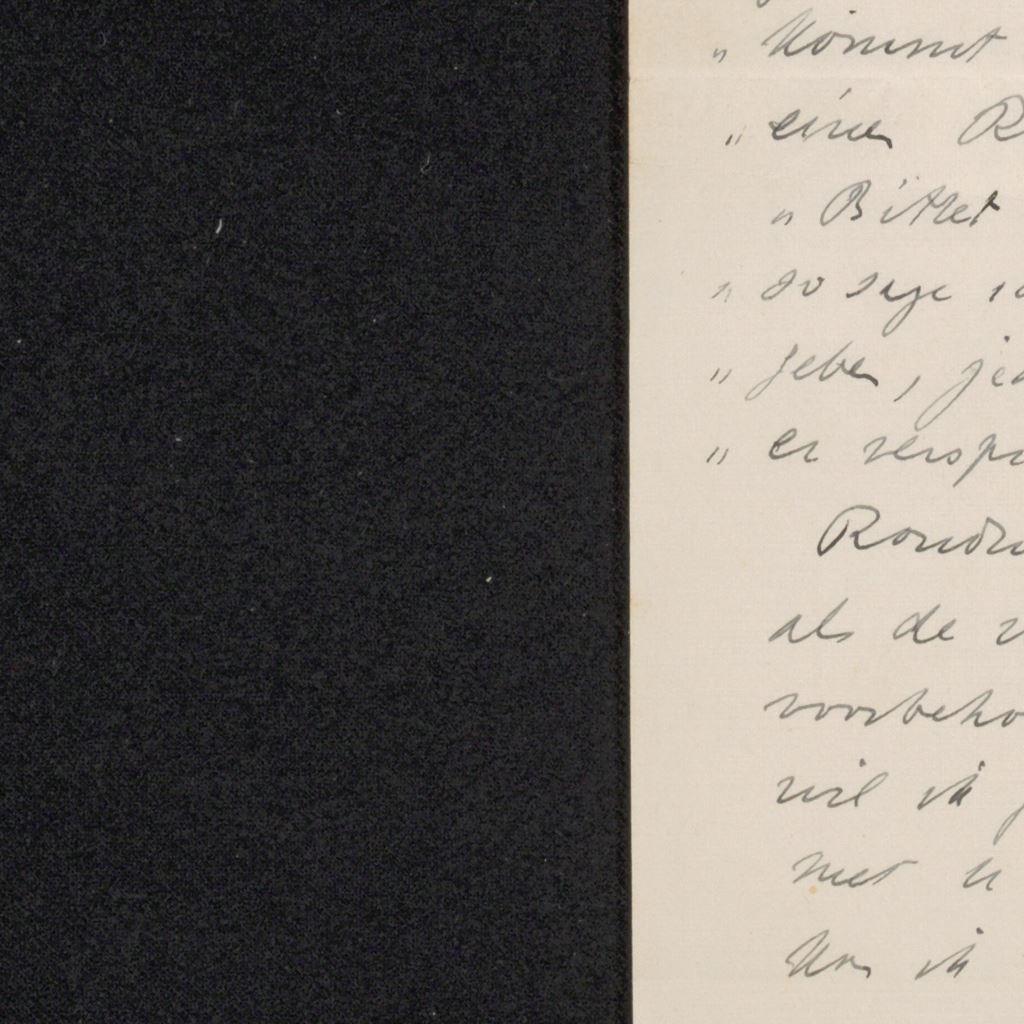 „ kommt
„ einen R
„ Bittet
„ so sage ic
„ geben, jed
„ er verspr
Rond
als de v
voorbeho
wil ik g
met u
kon ik